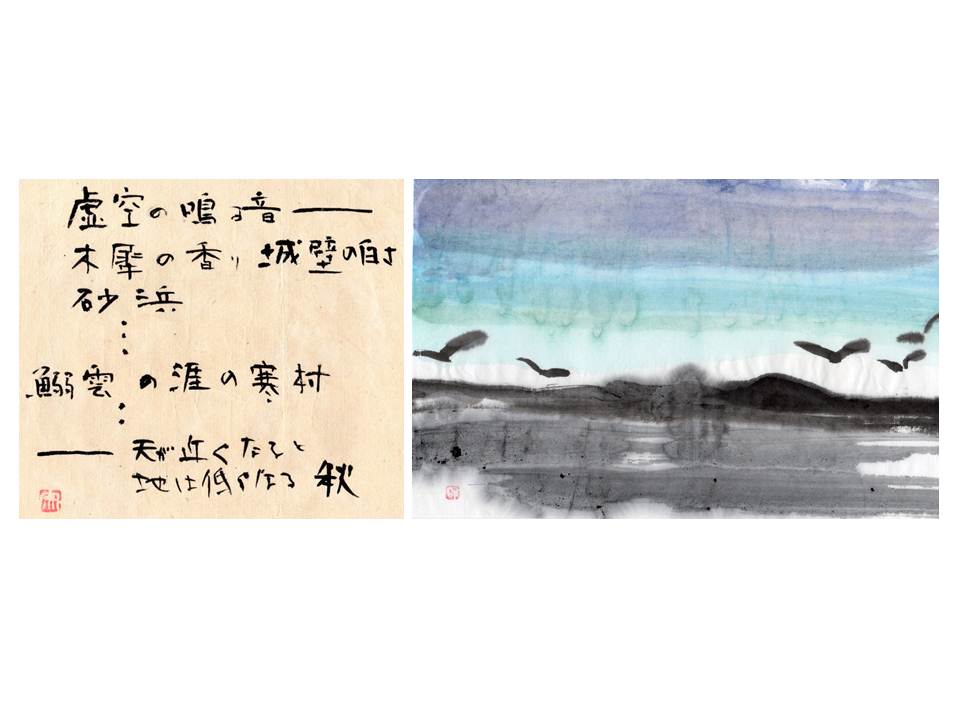 虚空の鳴る音——
木犀の香り 城壁の白さ
砂浜
⋮
鰯雲の涯の寒村
⋮
——天が近くなると
地は低くなる 秋